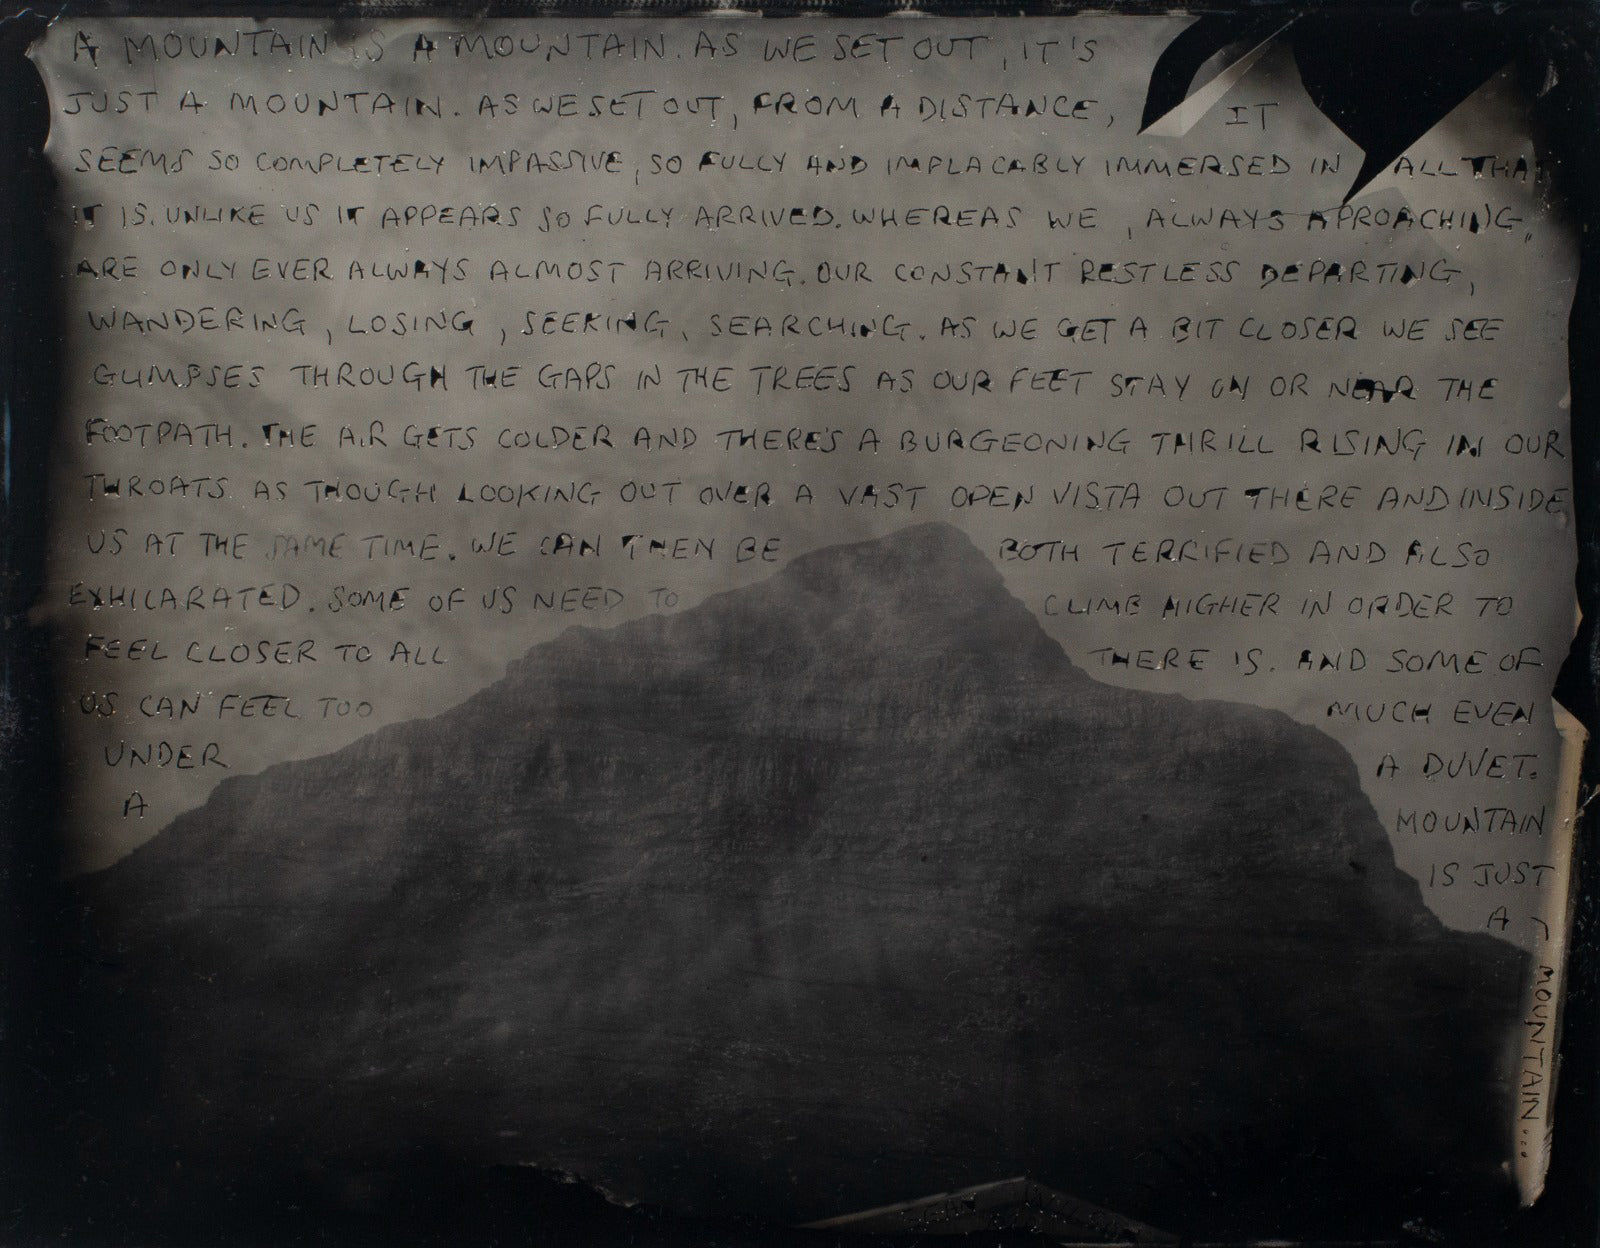 A MOUNTAIN IS A MOUNTAIN. AS WE SET OUT, IT'S
JUST A MOUNTAIN. AS WE SET OUT, FROM A DISTANCE, IT
SEEMS SO COMPLETELY IMPASSIVE, SO FULLY AND IMPLACABLY IMMERSED IN ALL THAT
IT IS. UNLIKE US IT APPEARS SO FULLY ARRIVED. WHEREAS WE, ALWAYS APROACHING,
ARE ONLY EVER ALWAYS ALMOST ARRIVING. OUR CONSTANT RESTLESS DEPARTING,
WANDERING, LOSING, SEEKING, SEARCHING. AS WE GET A BIT CLOSER WE SEE
GLIMPSES THROUGH THE GAPS IN THE TREES AS OUR FEET STAY ON OR NEAR THE
FOOTPATH. THE AIR GETS COLDER AND THERE'S A BURGEONING THRILL RISING IN OUR
THROATS AS THOUGH LOOKING OUT OVER A VAST OPEN VISTA OUT THERE AND INSIDE
US AT THE SAME TIME. WE CAN THEN BE BOTH TERRIFIED AND ALSO
EXHILARATED. SOME OF US NEED TO CLIMB HIGHER IN ORDER TO
FEEL CLOSER TO ALL THERE IS. AND SOME OF
US CAN FEEL TOO MUCH EVEN
UNDER A DUVET.
A MOUNTAIN
IS JUST
A
MOUNTAIN....